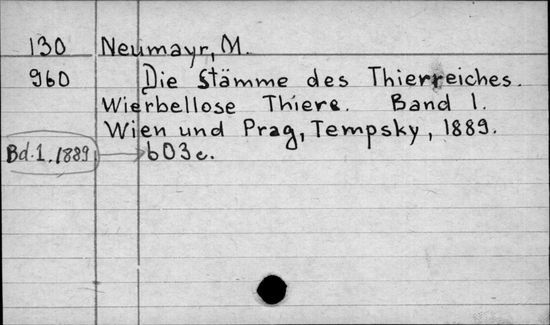 130 Neumayr, M.
960 Die Stämme des Thierreiches.
Wierbellose Thiere. Band 1.
Wien und Prag, Tempsky, 1889.
Bd. 1. 1889 603 c.